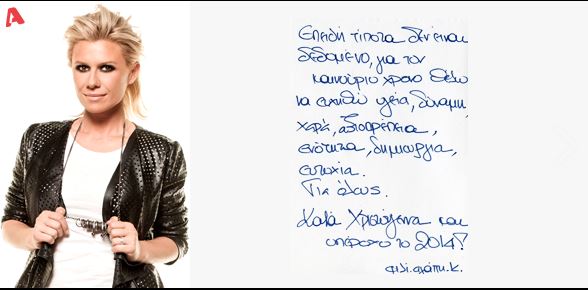 Επειδή τίποτα δεν είναι
δεδομένο, για τον
καινούριο χρόνο θέλω
να ευχηθώ υγεία, δύναμη,
χαρά, αξιοπρέπεια,
ενότητα, δημιουργία,
ευτυχία.
Για όλους.
Καλά Χριστούγεννα και
υπέροχο το 2014!
φιλί. αγάπη. κ.